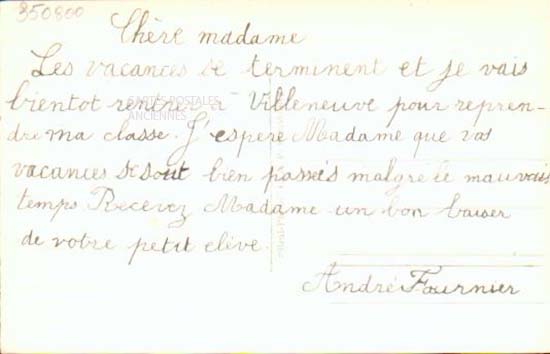 350800
Chère madame
Les vacances se terminent et je vais
bientot rentrer à Villeneuve pour repren-
CARTES POSTALES
ANCIENNES
dre ma classe. J'espère Madame que vos
vacances se sont bien passés malgre le mauvais
temps Recevez Madame un bon baiser
de votre petit elève.
André Fournier